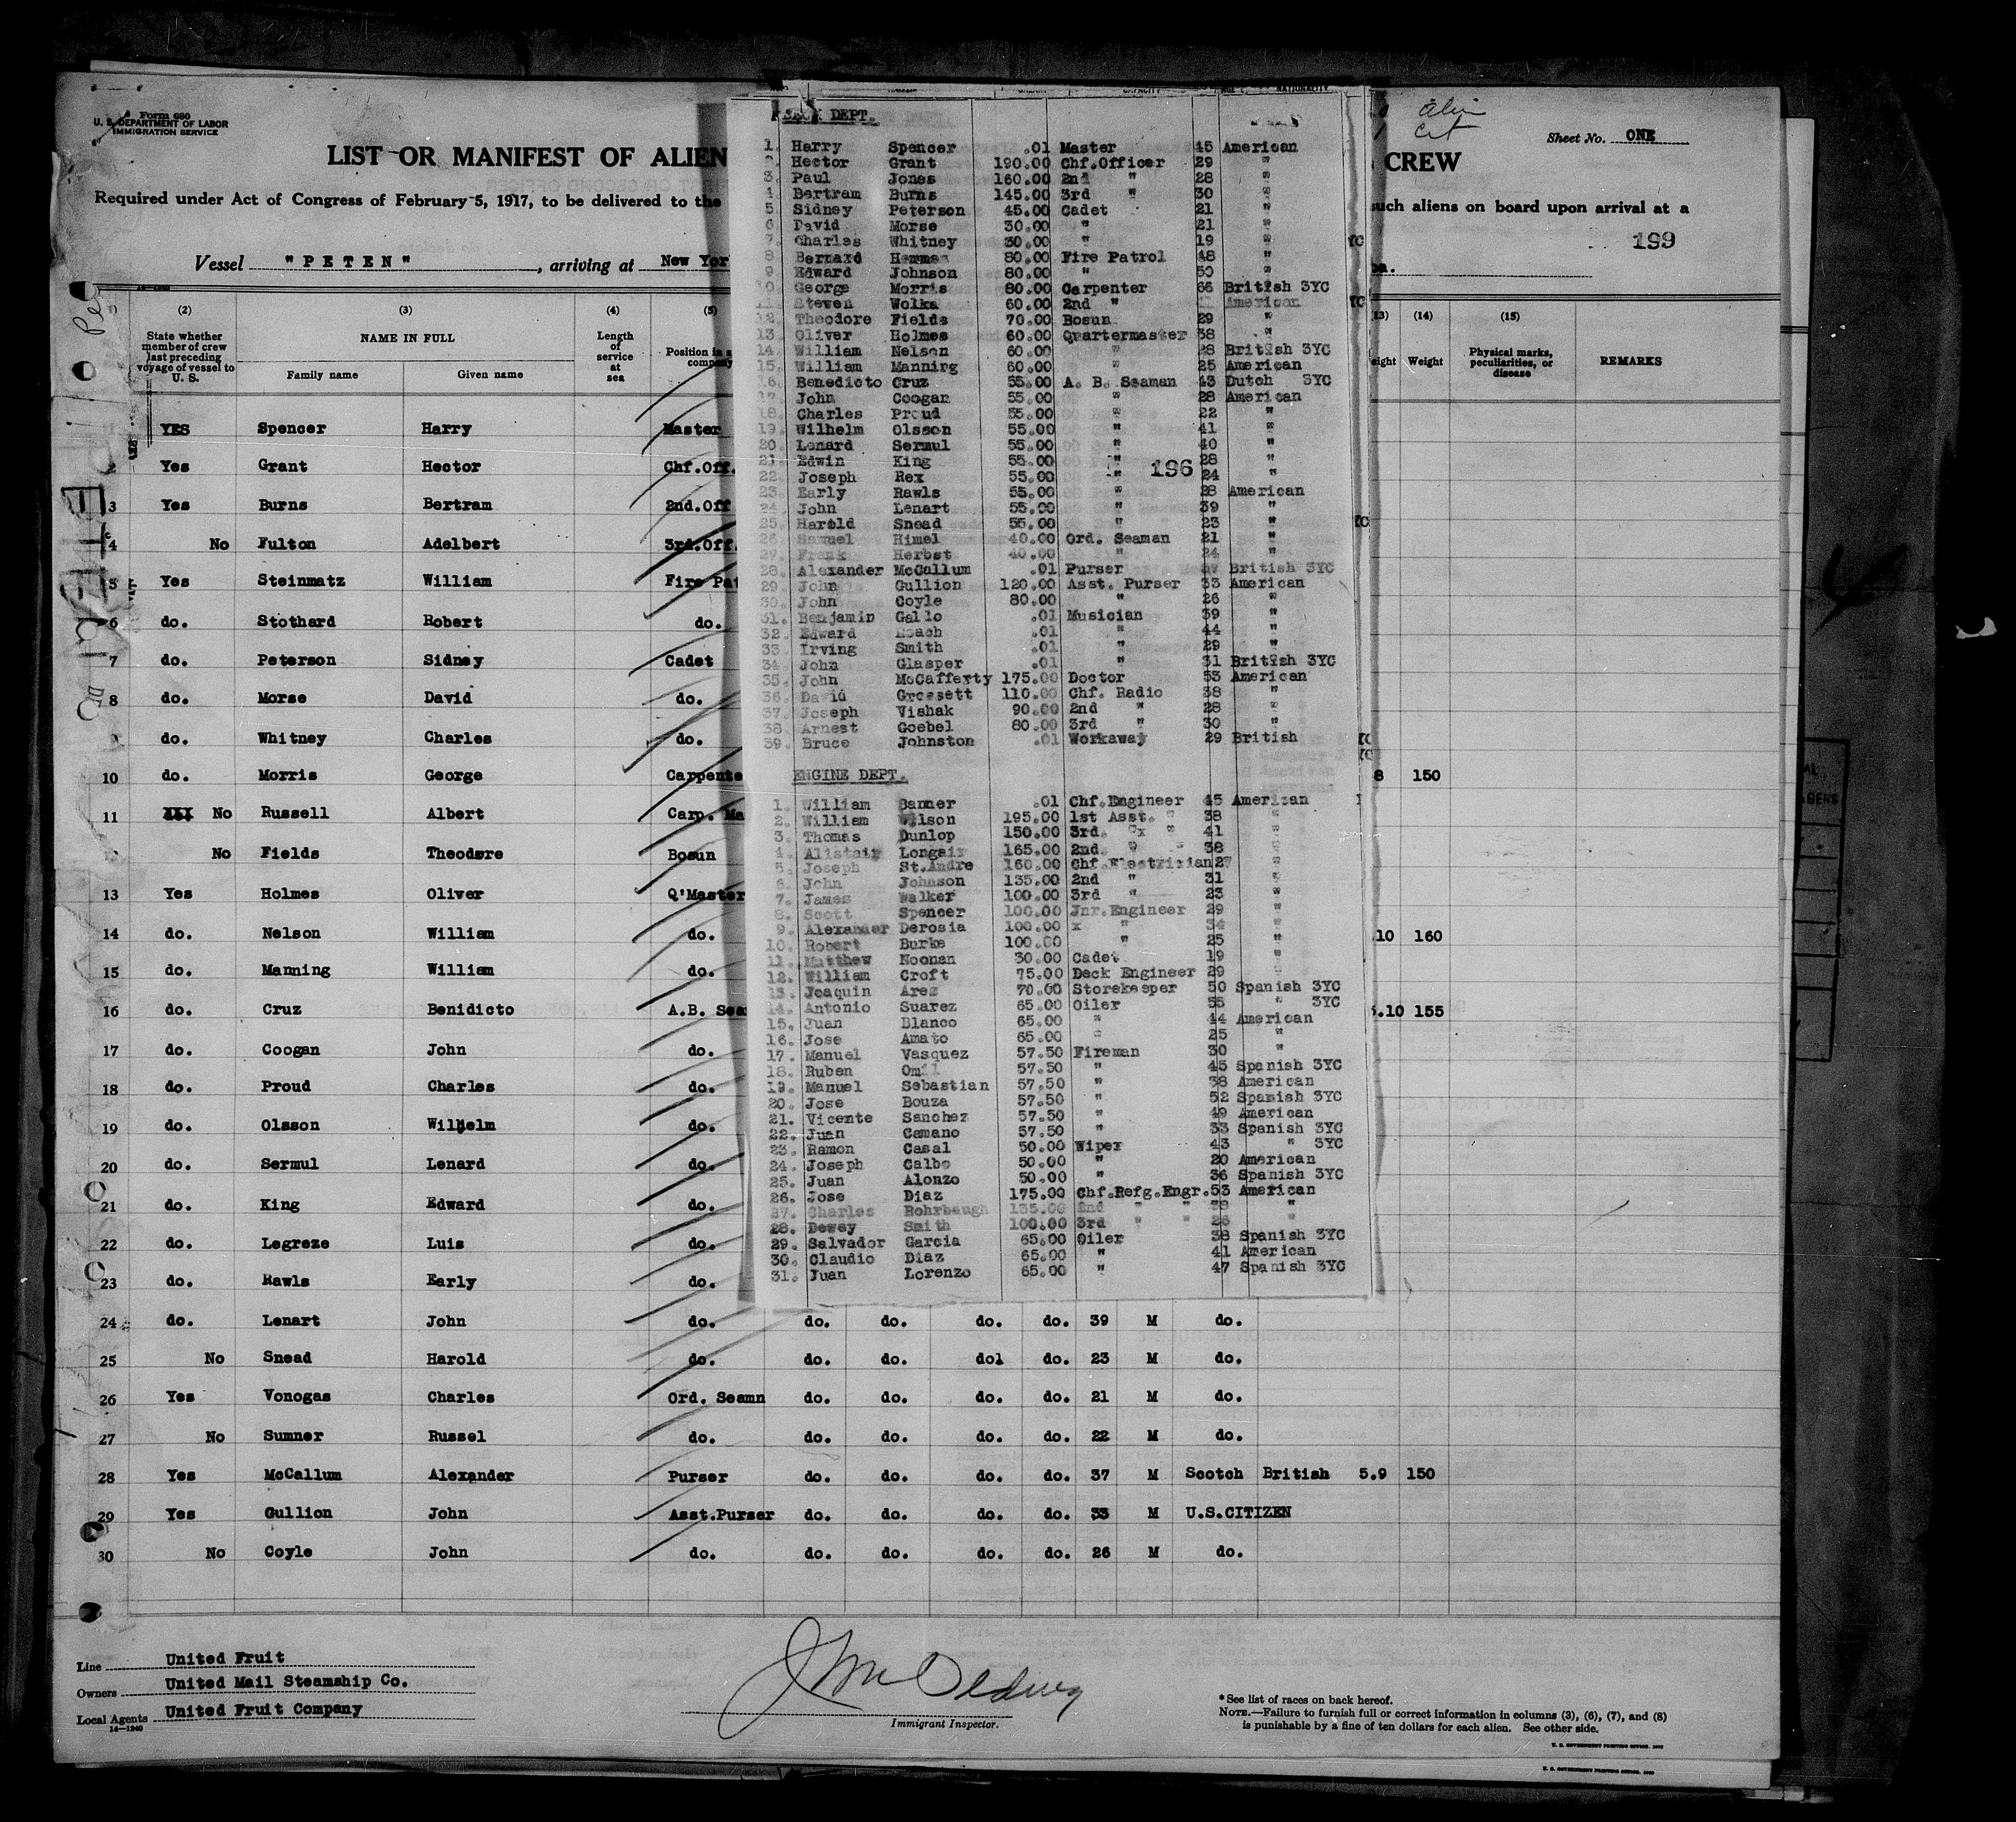 Form 680
U. S. DEPARTMENT OF LABOR
IMMIGRATION SERVICE
LIST OR MANIFEST OF ALIEN
CREW
Sheet No. ONE
Required under Act of Congress of February 5, 1917, to be delivered to the
such aliens on board upon arrival at a
199
Vessel "PETEN", arriving at New Yor
(2) (3) (4) (5)
(13) (14) (15)
State whether member of crew last preceding voyage of vessel to U. S.
NAME IN FULL
Family name Given name
Length of service at sea
Position in
Weight
Physical marks, peculiarities, or disease
REMARKS
YES Spencer Harry Master
2 Yes Grant Hector Chf.Off.
3 Yes Burns Bertram 2nd.Off
4 No Fulton Adelbert 3rd.Off.
5 Yes Steinmatz William Fire Pat
6 do. Stothard Robert do.
7 do. Peterson Sidney Cadet
8 do. Morse David do.
do. Whitney Charles do.
10 do. Morris George Carpente 8 150
11 No Russell Albert Carp. Ma
No Fields Theodore Bosun
13 Yes Holmes Oliver Q'Master
14 do. Nelson William do. .10 160
15 do. Manning William do.
16 do. Cruz Benidicto A.B. Sea 5.10 155
17 do. Coogan John do.
18 do. Proud Charles do.
19 do. Olsson Wilhelm do.
20 do. Sermul Lenard do.
21 do. King Edward do.
22 do. Legreze Luis do.
23 do. Rawls Early do.
24 do. Lenart John do. do. do. do. do. 39 M do.
25 No Snead Harold do. do. do. dol do. 23 M do.
26 Yes Vonogas Charles Ord. Seamn do. do. do. do. 21 M do.
27 No Sumner Russel do. do. do. do. do. 22 M do.
28 Yes McCallum Alexander Purser do. do. do. do. 37 M Scotch British 5.9 150
29 Yes Gullion John Asst.Purser do. do. do. do. 33 M U.S.CITIZEN
30 No Coyle John do. do. do. do. do. 26 M do.
DECK DEPT.
1. Harry Spencer .01 Master 45 American
2. Hector Grant 190.00 Chf.Officer 29 "
3. Paul Jones 160.00 2nd " 28 "
4 Bertram Burns 145.00 3rd " 30 "
5 Sidney Peterson 45.00 Cadet 21 "
6 David Morse 30.00 " 21 "
7. Charles Whitney 30.00 " 19 "
8 Bernard 80.00 Fire Patrol 48 "
9. Edward Johnson 80.00 " 50 "
10. George Morris 80.00 Carpenter 66 British 3YC
11. Steven Wolka 60.00 2nd " American
12. Theodore Fields 70.00 Bosun 29 "
13. Oliver Holmes 60.00 Quartermaster 38 "
14. William Nelson 60.00 " 28 British 3YC
15. William Manning 60.00 " 25 American
16. Benedicto Cruz 55.00 A. B. Seaman 43 Dutch 3YC
17. John Coogan 55.00 " 28 American
18. Charles Proud 55.00 " 22 "
19. Wilhelm Olsson 55.00 " 41 "
20. Lenard Sermul 55.00 " 40 "
21. Edwin King 55.00 " 28 "
22. Joseph Rex 55.00 " 196 24 "
23. Early Rawls 55.00 " 28 American
24. John Lenart 55.00 " 39 "
25. Harold Snead 55.00 " 23 "
26. Samuel Himel 40.00 Ord. Seaman 21 "
27. Frank Herbst 40.00 " 24 "
28. Alexander McCallum .01 Purser British 3YC
29. John Gullion 120.00 Asst. Purser 33 American
30. John Coyle 80.00 " 26 "
31. Benjamin Gallo .01 Musician 39 "
32. Edward Roach .01 " 44 "
33. Irving Smith .01 " 29 "
34. John Glasper .01 " 31 British 3YC
35. John McCafferty 175.00 Doctor 53 American
36. David Grossett 110.00 Chf. Radio 38 "
37. Joseph Vishak 90.00 2nd " 28 "
38. Arnest Goebel 80.00 3rd " 30 "
39. Bruce Johnston .01 Workaway 29 British
ENGINE DEPT.
1. William Sanner .01 Chf.Engineer 45 American
2. William Wilson 195.00 1st Asst. " 38 "
3. Thomas Dunlop 150.00 3rd. "x " 41 "
4. Alistair Longair 165.00 2nd. " " 38 "
5. Joseph St.Andre 160.00 Chf.Electrician 27 "
6. John Johnson 135.00 2nd " 31 "
7. James Walker 100.00 3rd " 23 "
8. Scott Spencer 100.00 Jnr.Engineer 29 "
9. Alexander Derosia 100.00 x " 34 "
10. Robert Burke 100.00 " 25 "
11. Matthew Noonan 30.00 Cadet 19 "
12. William Croft 75.00 Deck Engineer 29 "
13. Joaquin Arez 70.00 Storekeeper 50 Spanish 3YC
14. Antonio Suarez 65.00 Oiler 55 " 3YC
15. Juan Blanco 65.00 " 44 American
16. Jose Amato 65.00 " 25 "
17. Manuel Vasquez 57.50 Fireman 30 "
18. Ruben Omil 57.50 " 45 Spanish 3YC
19. Manuel Sebastian 57.50 " 38 American
20. Jose Bouza 57.50 " 52 Spanish 3YC
21. Vicente Sanchez 57.50 " 49 American
22. Juan Camano 57.50 " 33 Spanish 3YC
23. Ramon Casal 50.00 Wiper 43 " 3YC
24. Joseph Calbo 50.00 " 20 American
25. Juan Alonzo 50.00 " 36 Spanish 3YC
26. Jose Diaz 175.00 Chf.Refg.Engr. 53 American
27. Charles Rohrbaugh 135.00 2nd " " 38 "
28. Dewey Smith 100.00 3rd " " 26 "
29. Salvador Garcia 65.00 Oiler 38 Spanish 3YC
30. Claudio Diaz 65.00 " 41 American
31. Juan Lorenzo 65.00 " 47 Spanish 3YC
Line United Fruit
Owners United Mail Steamship Co.
Local Agents United Fruit Company
14—1240
Immigrant Inspector.
*See list of races on back hereof.
NOTE.—Failure to furnish full or correct information in columns (3), (6), (7), and (8)
is punishable by a fine of ten dollars for each alien. See other side.